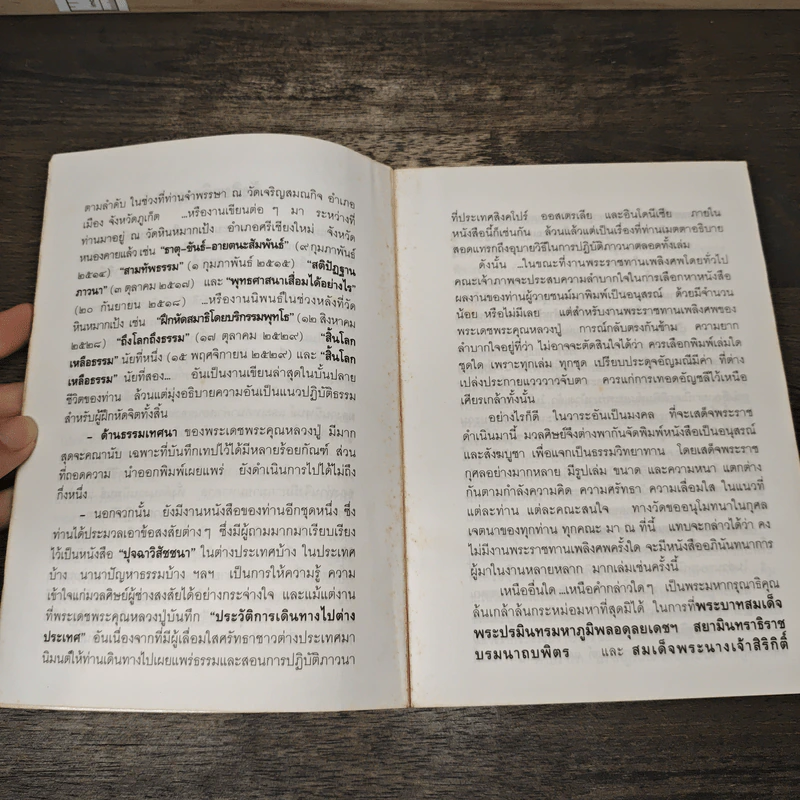 ตามลำดับ ในช่วงที่ท่านจำพรรษา ณ วัดเจริญสมณกิจ อำเภอ
เมือง จังหวัดภูเก็ต ...หรืองานเขียนต่อ ๆ มา ระหว่างที่
ท่านมาอยู่ ณ วัดหินหมากเป้ง อำเภอศรีเชียงใหม่ จังหวัด
หนองคายแล้ว เช่น "ธาตุ-ขันธ์-อายตนะสัมพันธ์" (๙ กุมภาพันธ์
๒๕๑๔) "สามทัพธรรม" (๑ กุมภาพันธ์ ๒๕๑๕) "สติปัฏฐาน
ภาวนา" (๓ ตุลาคม ๒๕๑๗) และ "พุทธศาสนาเสื่อมได้อย่างไร"
(๒๐ กันยายน ๒๕๑๘) ...หรืองานนิพนธ์ในช่วงหลังที่วัด
หินหมากเป้ง เช่น "ฝึกหัดสมาธิโดยบริกรรมพุทโธ" (๑๒ สิงหาคม
๒๕๒๘) "ถึงโลกถึงธรรม" (๑๗ ตุลาคม ๒๕๒๙) "สิ้นโลก
เหลือธรรม" นัยที่หนึ่ง (๑๕ พฤศจิกายน ๒๕๒๙) และ "สิ้นโลก
เหลือธรรม" นัยที่สอง... อันเป็นงานเขียนล่าสุดในบั้นปลาย
ชีวิตของท่าน ล้วนแต่มุ่งอธิบายความอันเป็นแนวปฏิบัติธรรม
สำหรับผู้ฝึกหัดจิตทั้งสิ้น
- ด้านธรรมเทศนา ของพระเดชพระคุณหลวงปู่ มีมาก
สุดจะคณานับ เฉพาะที่บันทึกเทปไว้ได้มีหลายร้อยกัณฑ์ ส่วน
ที่ถอดความ นำออกพิมพ์เผยแพร่ ยังดำเนินการไปได้ไม่ถึง
กึ่งหนึ่ง
- นอกจากนั้น ยังมีงานหนังสือของท่านอีกชุดหนึ่ง ซึ่ง
ท่านได้ประมวลเอาข้อสงสัยต่าง ๆ ซึ่งมีผู้ถามมากมาเรียบเรียง
ไว้เป็นหนังสือ "ปุจฉาวิสัชชนา" ในต่างประเทศบ้าง ในประเทศ
บ้าง นานาปัญหาธรรมบ้าง ฯลฯ เป็นการให้ความรู้ ความ
เข้าใจแก่มวลศิษย์ผู้ช่างสงสัยได้อย่างกระจ่างใจ และแม้แต่งาน
ที่พระเดชพระคุณหลวงปู่บันทึก "ประวัติการเดินทางไปต่าง
ประเทศ" อันเนื่องจากที่มีผู้เลื่อมใสศรัทธาชาวต่างประเทศมา
นิมนต์ให้ท่านเดินทางไปเผยแพร่ธรรมและสอนการปฏิบัติภาวนา
ที่ประเทศสิงคโปร์ ออสเตรเลีย และอินโดนีเซีย ภายใน
หนังสือนี้ก็เช่นกัน ล้วนแล้วแต่เป็นเรื่องที่ท่านเมตตาอธิบาย
สอดแทรกถึงอุบายวิธีในการปฏิบัติภาวนาตลอดทั้งเล่ม
ดังนั้น ...ในขณะที่งานพระราชทานเพลิงศพโดยทั่วไป
คณะเจ้าภาพจะประสบความลำบากใจในการเลือกหาหนังสือ
ผลงานของท่านผู้วายชนม์มาพิมพ์เป็นอนุสรณ์ ด้วยมีจำนวน
น้อย หรือไม่มีเลย แต่สำหรับงานพระราชทานเพลิงศพของ
พระเดชพระคุณหลวงปู่ การณ์กลับตรงกันข้าม ความยาก
ลำบากใจอยู่ที่ว่า ไม่อาจจะตัดสินใจได้ว่า ควรเลือกพิมพ์เล่มใด
ชุดใด เพราะทุกเล่ม ทุกชุด เปรียบประดุจอัญมณีมีค่า ที่ต่าง
เปล่งประกายแวววาวจับตา ควรแก่การเทอดอัญชลีไว้เหนือ
เศียรเกล้าทั้งนั้น
อย่างไรก็ดี ในวาระอันเป็นมงคล ที่จะเสด็จพระราช
ดำเนินมานี้ มวลศิษย์จึงต่างพากันจัดพิมพ์หนังสือเป็นอนุสรณ์
และสังฆบูชา เพื่อแจกเป็นธรรมวิทยาทาน โดยเสด็จพระราช
กุศลอย่างมากหลาย มีรูปเล่ม ขนาด และความหนา แตกต่าง
กันตามกำลังความคิด ความศรัทธา ความเลื่อมใส ในแนวที่
แต่ละท่าน แต่ละคณะสนใจ ทางวัดขออนุโมทนาในกุศล
เจตนาของทุกท่าน ทุกคณะ มา ณ ที่นี้ แทบจะกล่าวได้ว่า คง
ไม่มีงานพระราชทานเพลิงศพครั้งใด จะมีหนังสืออภินันทนาการ
ผู้มาในงานหลายหลาก มากเล่มเช่นครั้งนี้
เหนืออื่นใด ...เหนือคำกล่าวใด ๆ เป็นพระมหากรุณาธิคุณ
ล้นเกล้าล้นกระหม่อมหาที่สุดมิได้ ในการที่พระบาทสมเด็จ
พระปรมินทรมหาภูมิพลอดุลยเดชฯ สยามินทราธิราช
บรมนาถบพิตร และ สมเด็จพระนางเจ้าสิริกิติ์